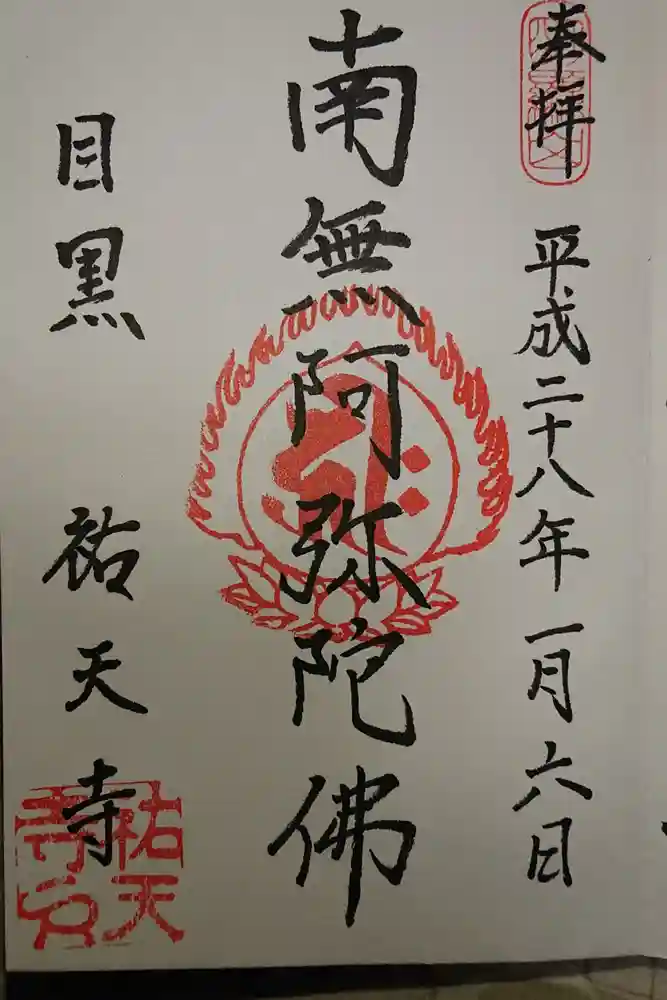 奉拝
平成二十八年一月六日
南無阿弥陀佛
目黒 祐天寺
祐天
寺印